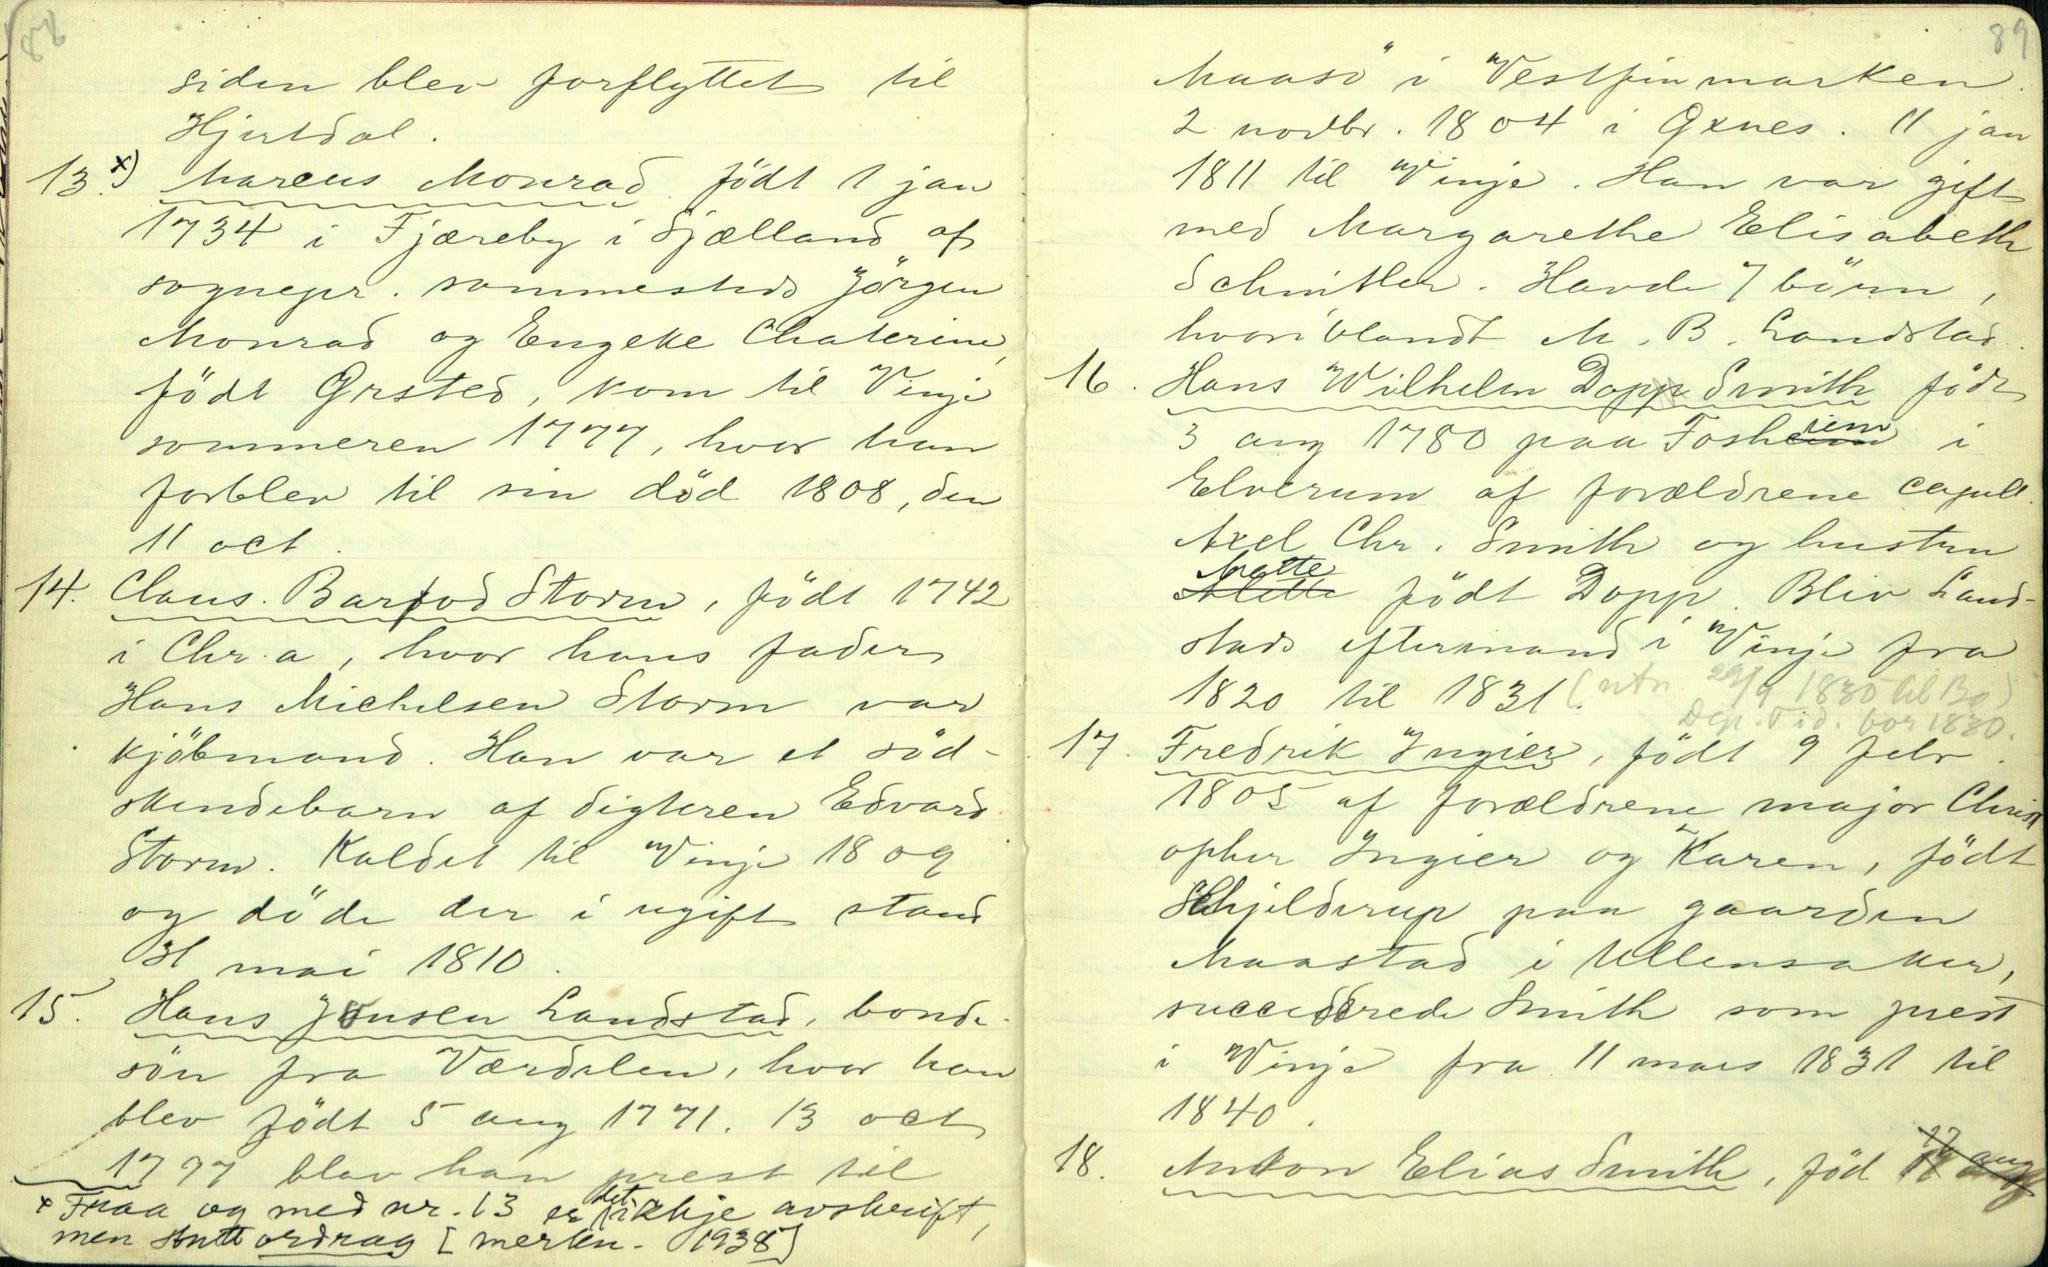 88
siden blev forflyttet til
Hjertdal.
13.x) Marcus Monrad født 1 jan
1734 i Fjæreby i Sjælland af
sognepr. sammesteds Jörgen
Monrad og Engeke Chaterine,
födt Ørsted, kom til Vinje
sommeren 1777, hvor han
forblev til sin död 1808, den
11 oct.
14. Claus Barfod Storm, födt 1742
i Chr.a, hvor hans fader
Hans Michelsen Storm var
kjöbmand. Han var et söd-
skendebarn af digteren Edvard
Storm. Kaldet til Vinje 1809
og döde der i ugift stand
31 mai 1810.
15. Hans Jensen Landstad, bonde-
sön fra Værdalen, hvor han
blev födt 5 aug 1771. 13 oct
1797 blev han prest til
x Fraa og med nr. 13 er det ikkje avskrift,
men stutt ordrag [merkn. 1938]
89
Maasö i Vestfinmarken.
2 novbr. 1804 i Øxnes. 11 jan
1811 til Vinje. Han var gift
med Margarethe Elisabeth
Schnitler. Havde 7 börn,
hvoriblandt M. B. Landstad.
16. Hans Wilhelm Dopp Smith födt
3 aug 1780 paa Fosheim i
Elverum af forældrene capult.
Axel Chr. Smith og hustru
Mette
Alette födt Dopp. Blev Land-
stads eftermand i Vinje fra
1820 til 1831. (utn. 29/9 1830 til Bø)
Dep. tid. for 1830.
17. Fredrik Ingier, födt 9 febr.
1805 af forældrene major Christ
opher Ingier og Karen, födt
Schjelderup paa gaarden
Maastad i Ullensaker,
succederede Smith som prest
i Vinje fra 11 mars 1831 til
1840.
18. Anton Elias Smith, föd 17 aug